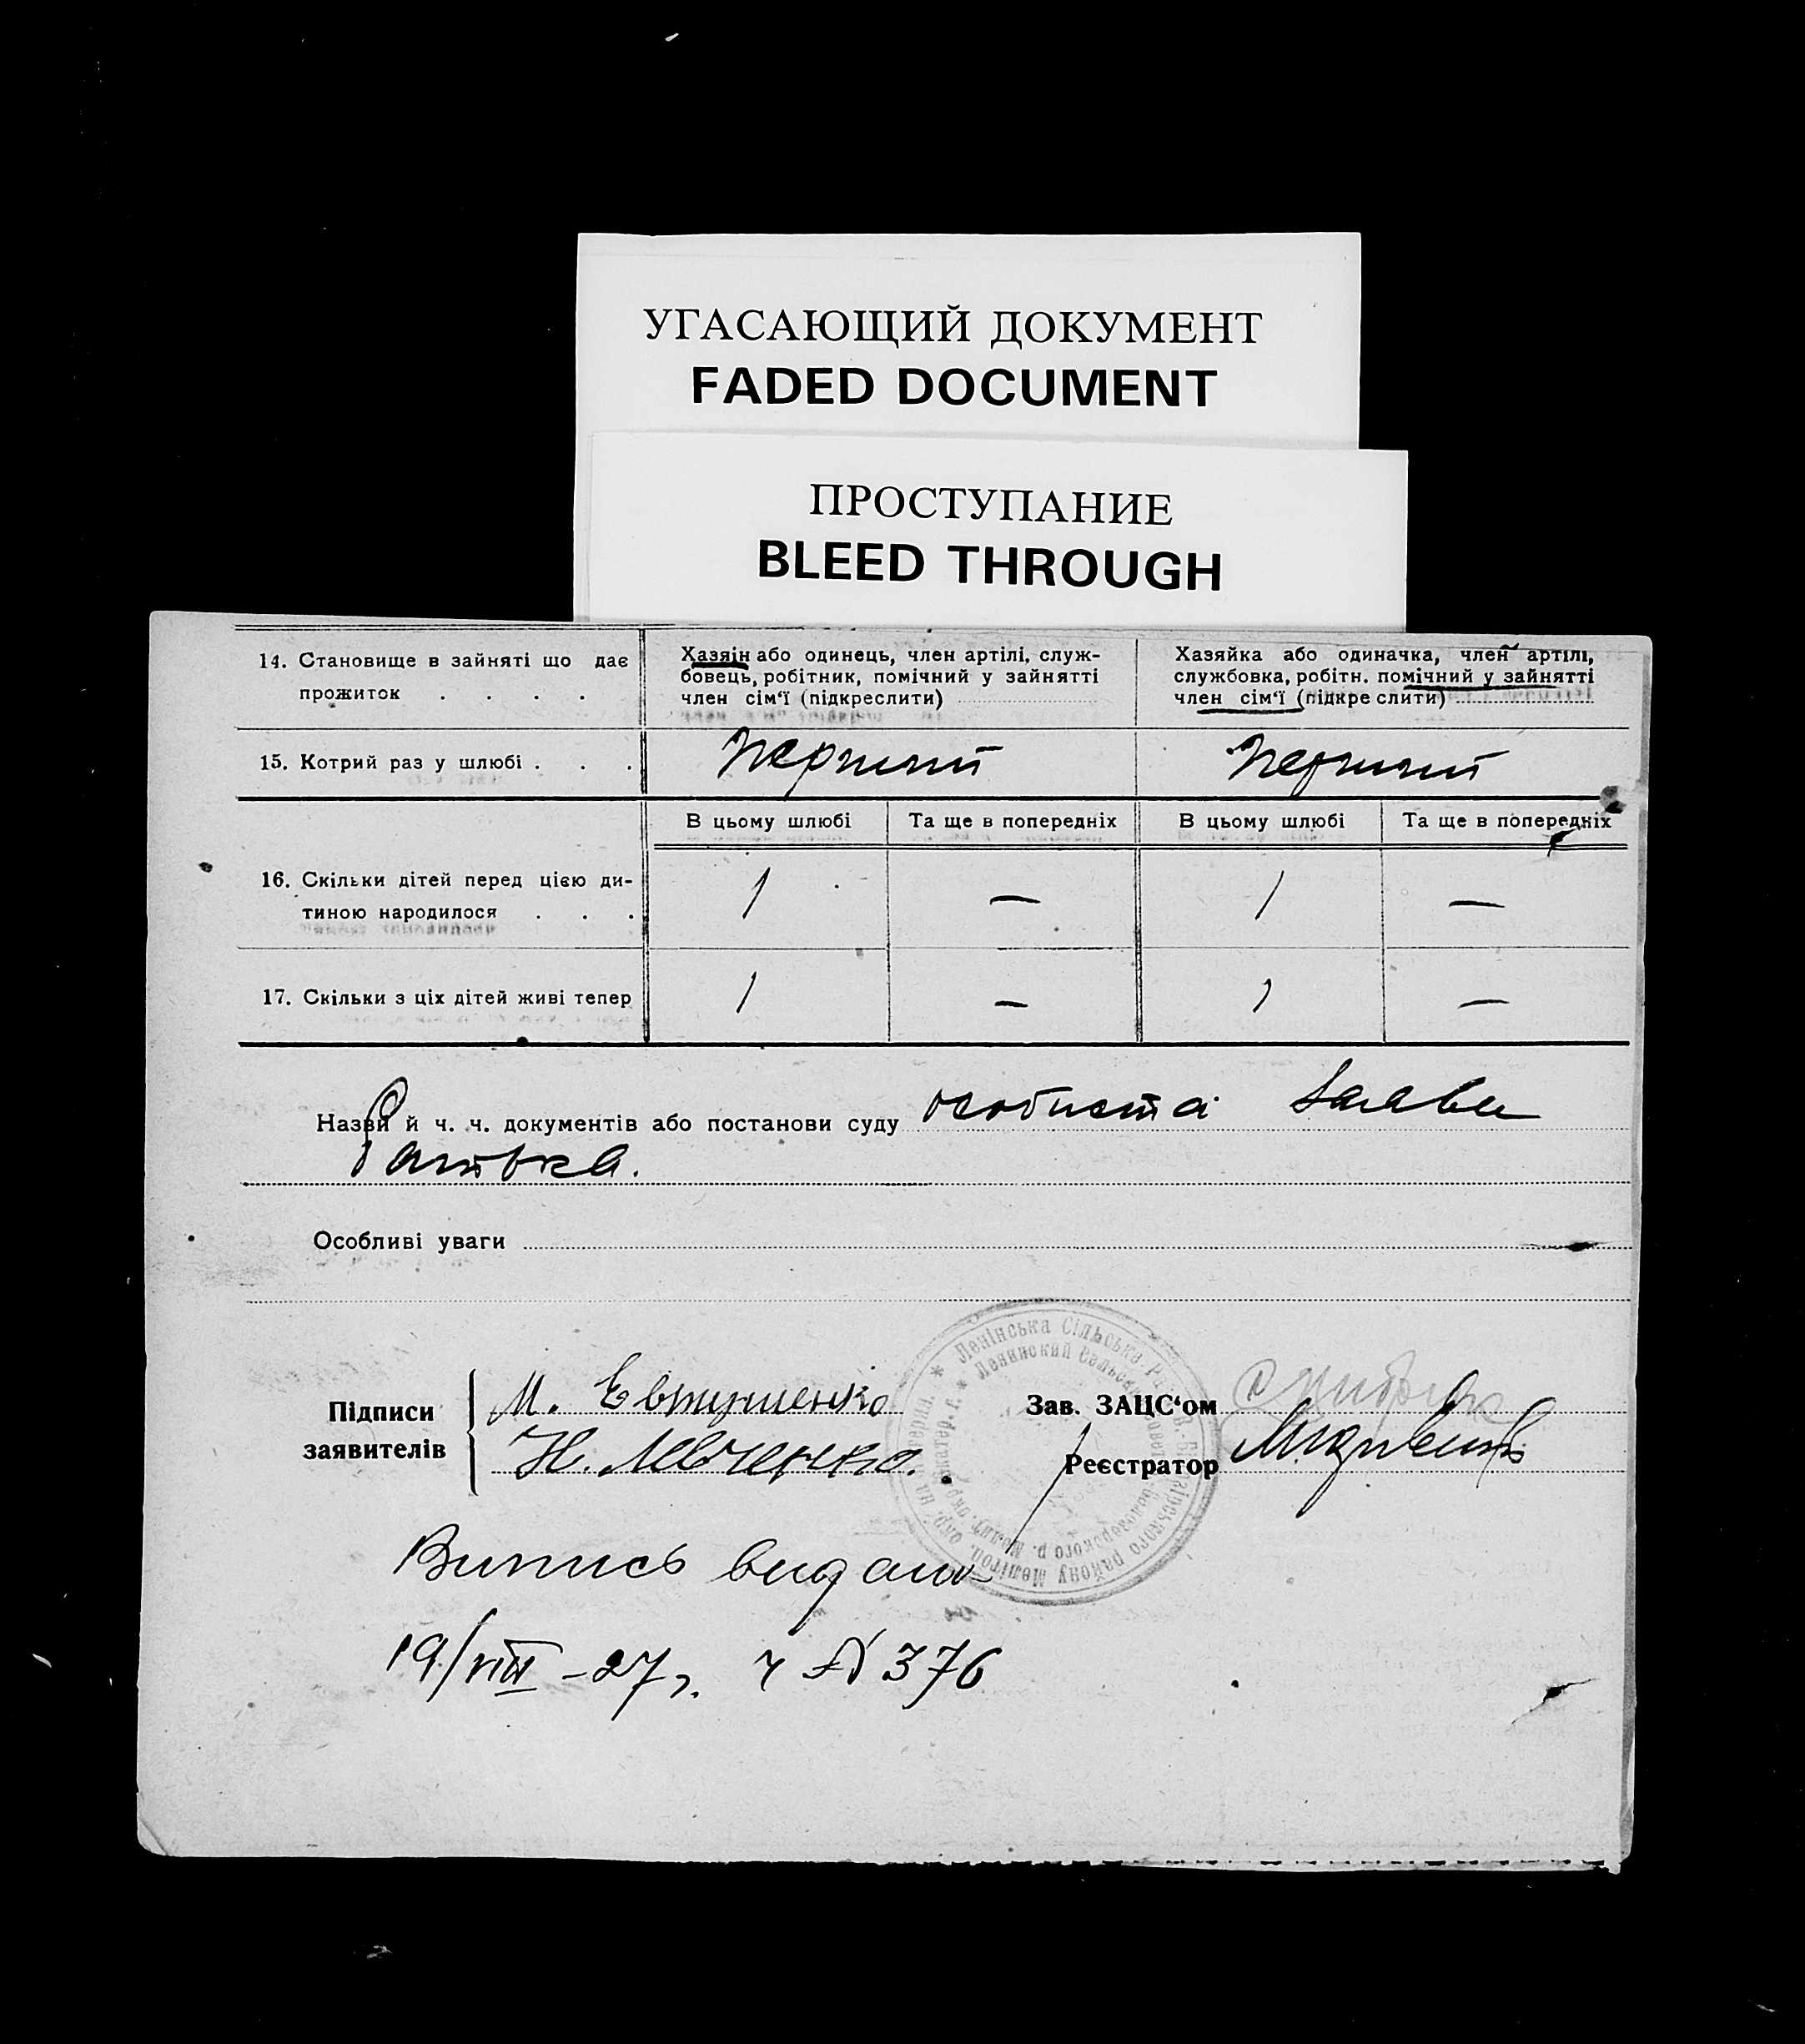 УГАСАЮЩИЙ ДОКУМЕНТ
FADED DOCUMENT
ПРОСТУПАНИЕ
BLEED THROUGH
14. Становище в зайняті що дає
прожиток . . . .
Хазяін або одинець, член артілі, служ-
бовець, робітник, помічний у зайнятті
член сім‘ї (підкреслити)
Хазяйка або одиначка, член артілі,
службовка, робітн. помічний у зайнятті
член сім‘ї (підкре слити)
15. Котрий раз у шлюбі . . . Перший Перший
В цьому шлюбі Та ще в попередніх В цьому шлюбі Та ще в попередніх
16. Скільки дітей перед цією ди-
тиною народилося . . . 1 — 1 —
17. Скільки з ціх дітей живі тепер 1 — 1 —
Назви й ч. ч. документів або постанови суду особиста заява
батька.
Особливі уваги
Підписи
заявителів
М. Евтушенко
Н. Левченко.
Зав. ЗАЦС‘ом
Реєстратор
Ленінська Сільська
Ленинский Сельс
району Мелітоп. окр. на Катерин.
Випись видано
19/VIII - 27 г. ч № 376